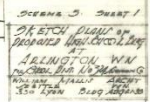 SCHEME 3. SHEET 1
SKETCH PLANS OF
PROPOSED HIGH SCHOOL BLDG
AT
ARLINGTON WN
FOR SCHOOL DIST NO
WILLIAM MALLIS ARCHT
SEATTLE WN
LYON BLDG